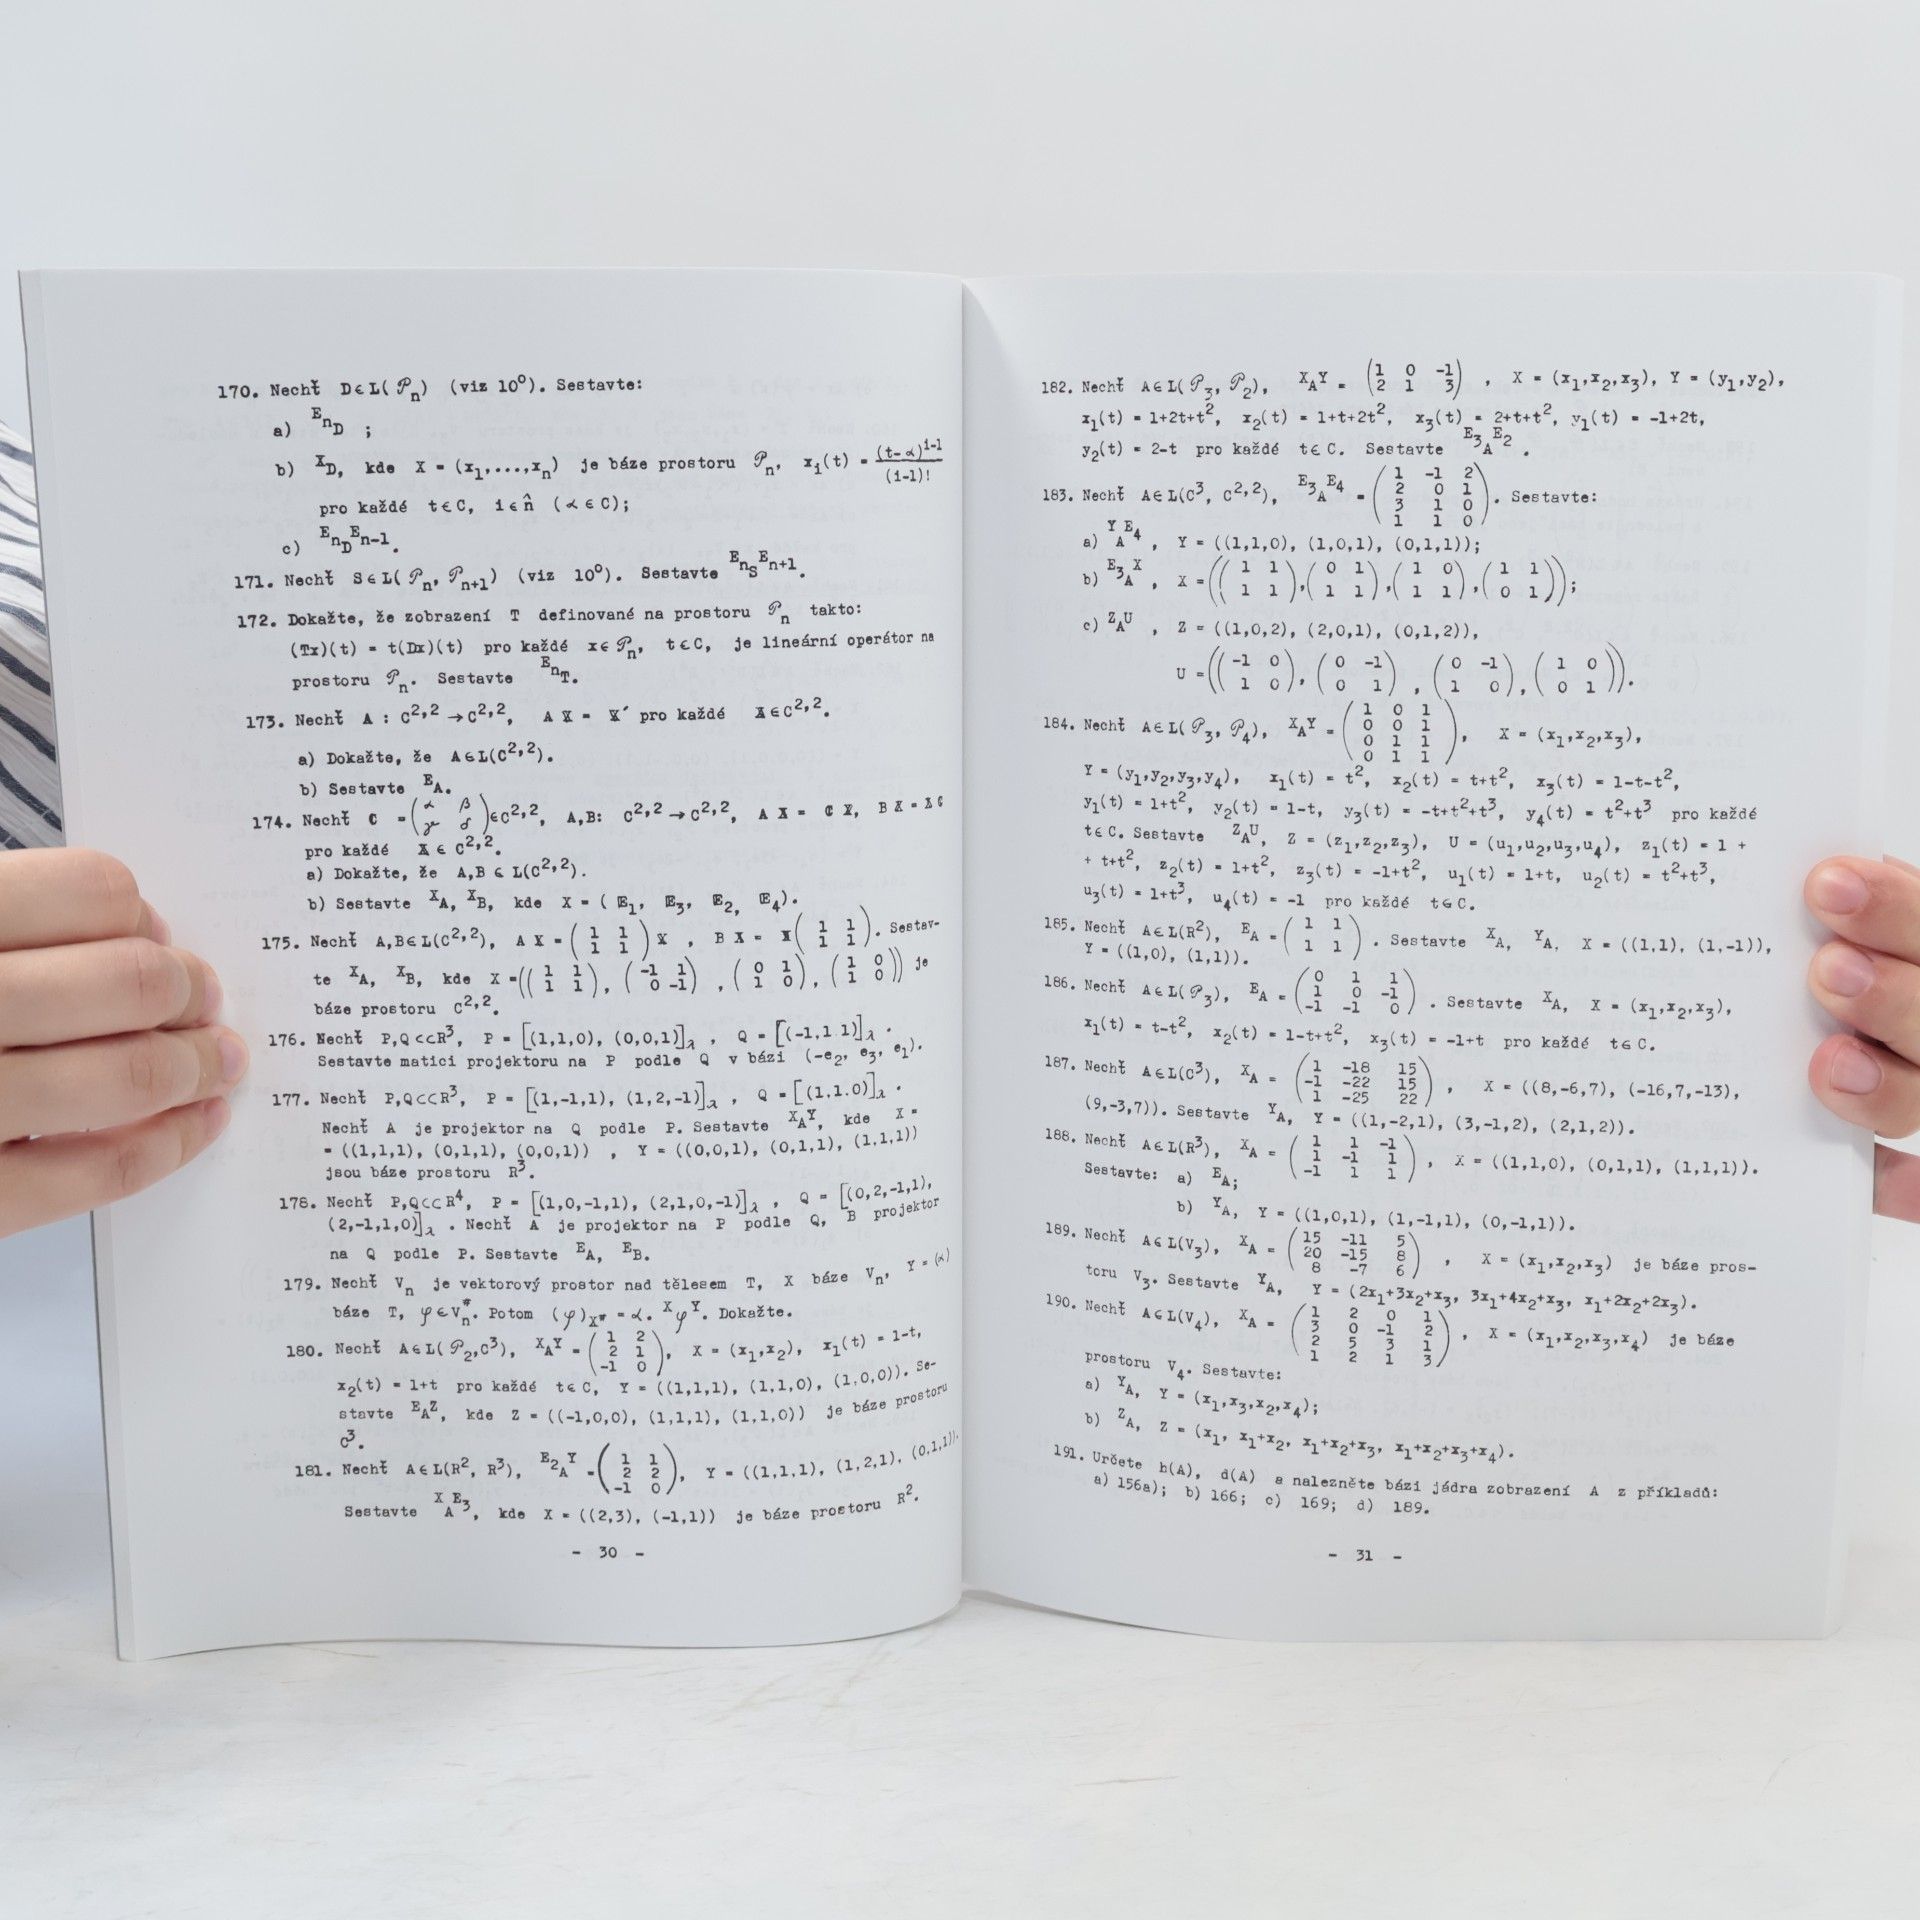 170. Nechť D∈L(𝒫n) (viz 10⁰). Sestavte:
a) EnD ;
b) XD, kde X = (x1,...,xn) je báze prostoru 𝒫n, xi(t) = (t-α)^(i-1)/(i-1)!
pro každé t∈C, i∈n̂ (α∈C);
c) EnDEn-1.
171. Nechť S∈L(𝒫n, 𝒫n+1) (viz 10⁰). Sestavte EnSEn+1.
172. Dokažte, že zobrazení T definované na prostoru 𝒫n takto:
(Tx)(t) = t(Dx)(t) pro každé x∈𝒫n, t∈C, je lineární operátor na
prostoru 𝒫n. Sestavte EnT.
173. Nechť A : C²,² → C²,², A X = X′ pro každé X∈C²,².
a) Dokažte, že A∈L(C²,²).
b) Sestavte EA.
174. Nechť C = (α β; γ δ)∈C²,², A,B: C²,² → C²,², A X = C X, B X = X C
pro každé X∈C²,².
a) Dokažte, že A,B∈L(C²,²).
b) Sestavte XA, XB, kde X = (E1, E3, E2, E4).
175. Nechť A,B∈L(C²,²), A X = (1 1; 1 1) X , B X = X (1 1; 1 1). Sestav-
te XA, XB, kde X = ((1 1; 1 1), (-1 1; 0 -1), (0 1; 1 0), (1 0; 1 0)) je
báze prostoru C²,².
176. Nechť P,Q⊂⊂R³, P = [(1,1,0), (0,0,1)]λ , Q = [(-1,1.1)]λ .
Sestavte matici projektoru na P podle Q v bázi (-e2, e3, e1).
177. Nechť P,Q⊂⊂R³, P = [(1,-1,1), (1,2,-1)]λ , Q = [(1,1.0)]λ .
Nechť A je projektor na Q podle P. Sestavte XAY, kde X =
= ((1,1,1), (0,1,1), (0,0,1)) , Y = ((0,0,1), (0,1,1), (1,1,1))
jsou báze prostoru R³.
178. Nechť P,Q⊂⊂R⁴, P = [(1,0,-1,1), (2,1,0,-1)]λ , Q = [(0,2,-1,1),
(2,-1,1,0)]λ . Nechť A je projektor na P podle Q, B projektor
na Q podle P. Sestavte EA, EB.
179. Nechť Vn je vektorový prostor nad tělesem T, X báze Vn, Y = (α)
báze T, φ∈Vn#. Potom (φ)X# = α. XφY. Dokažte.
180. Nechť A∈L(𝒫2,C³), XAY = (1 2; 2 1; -1 0), X = (x1,x2), x1(t) = 1-t,
x2(t) = 1+t pro každé t∈C, Y = ((1,1,1), (1,1,0), (1,0,0)). Se-
stavte EAZ, kde Z = ((-1,0,0), (1,1,1), (1,1,0)) je báze prostoru
C³.
181. Nechť A∈L(R², R³), E2AY = (1 1; 2 2; -1 0), Y = ((1,1,1), (1,2,1), (0,1,1)).
Sestavte XAE3, kde X = ((2,3), (-1,1)) je báze prostoru R².
- 30 -
182. Nechť A∈L(𝒫3, 𝒫2), XAY = (1 0 -1; 2 1 3) , X = (x1,x2,x3), Y = (y1,y2),
x1(t) = 1+2t+t², x2(t) = 1+t+2t², x3(t) = 2+t+t², y1(t) = -1+2t,
y2(t) = 2-t pro každé t∈C. Sestavte E3AE2 .
183. Nechť A∈L(C³, C²,²), E3AE4 = (1 -1 2; 2 0 1; 3 1 0; 1 1 0). Sestavte:
a) YAE4 , Y = ((1,1,0), (1,0,1), (0,1,1));
b) E3AX , X = ((1 1; 1 1),(0 1; 1 1),(1 0; 1 1),(1 1; 0 1));
c) ZAU , Z = ((1,0,2), (2,0,1), (0,1,2)),
U = ((-1 0; 1 0), (0 -1; 0 1) , (0 -1; 1 0), (1 0; 0 1)).
184. Nechť A∈L(𝒫3, 𝒫4), XAY = (1 0 1; 0 0 1; 0 1 1; 0 1 1), X = (x1,x2,x3),
Y = (y1,y2,y3,y4), x1(t) = t², x2(t) = t+t², x3(t) = 1-t-t²,
y1(t) = 1+t², y2(t) = 1-t, y3(t) = -t+t²+t³, y4(t) = t²+t³ pro každé
t∈C. Sestavte ZAU, Z = (z1,z2,z3), U = (u1,u2,u3,u4), z1(t) = 1 +
+ t+t², z2(t) = 1+t², z3(t) = -1+t², u1(t) = 1+t, u2(t) = t²+t³,
u3(t) = 1+t³, u4(t) = -1 pro každé t∈C.
185. Nechť A∈L(R²), EA = (1 1; 1 1) . Sestavte XA, YA, X = ((1,1), (1,-1)),
Y = ((1,0), (1,1)).
186. Nechť A∈L(𝒫3), EA = (0 1 1; 1 0 -1; -1 -1 0) . Sestavte XA, X = (x1,x2,x3),
x1(t) = t-t², x2(t) = 1-t+t², x3(t) = -1+t pro každé t∈C.
187. Nechť A∈L(C³), XA = (1 -18 15; -1 -22 15; 1 -25 22) , X = ((8,-6,7), (-16,7,-13),
(9,-3,7)). Sestavte YA, Y = ((1,-2,1), (3,-1,2), (2,1,2)).
188. Nechť A∈L(R³), XA = (1 1 -1; 1 -1 1; -1 1 1) , X = ((1,1,0), (0,1,1), (1,1,1)).
Sestavte: a) EA;
b) YA, Y = ((1,0,1), (1,-1,1), (0,-1,1)).
189. Nechť A∈L(V3), XA = (15 -11 5; 20 -15 8; 8 -7 6) , X = (x1,x2,x3) je báze pros-
toru V3. Sestavte YA, Y = (2x1+3x2+x3, 3x1+4x2+x3, x1+2x2+2x3).
190. Nechť A∈L(V4), XA = (1 2 0 1; 3 0 -1 2; 2 5 3 1; 1 2 1 3) , X = (x1,x2,x3,x4) je báze
prostoru V4. Sestavte:
a) YA, Y = (x1,x3,x2,x4);
b) ZA, Z = (x1, x1+x2, x1+x2+x3, x1+x2+x3+x4).
191. Určete h(A), d(A) a nalezněte bázi jádra zobrazení A z příkladů:
a) 156a); b) 166; c) 169; d) 189.
- 31 -